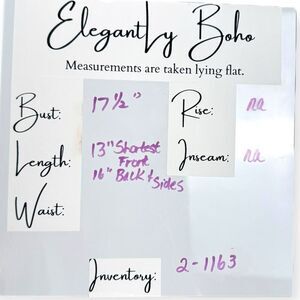 Elegantly Boho
Measurements are taken lying flat.
Bust: 17 1/2" Rise: na
Length: 13" Shortest Front Inseam: na
16" Back & Sides
Waist:
Inventory: 2-1163